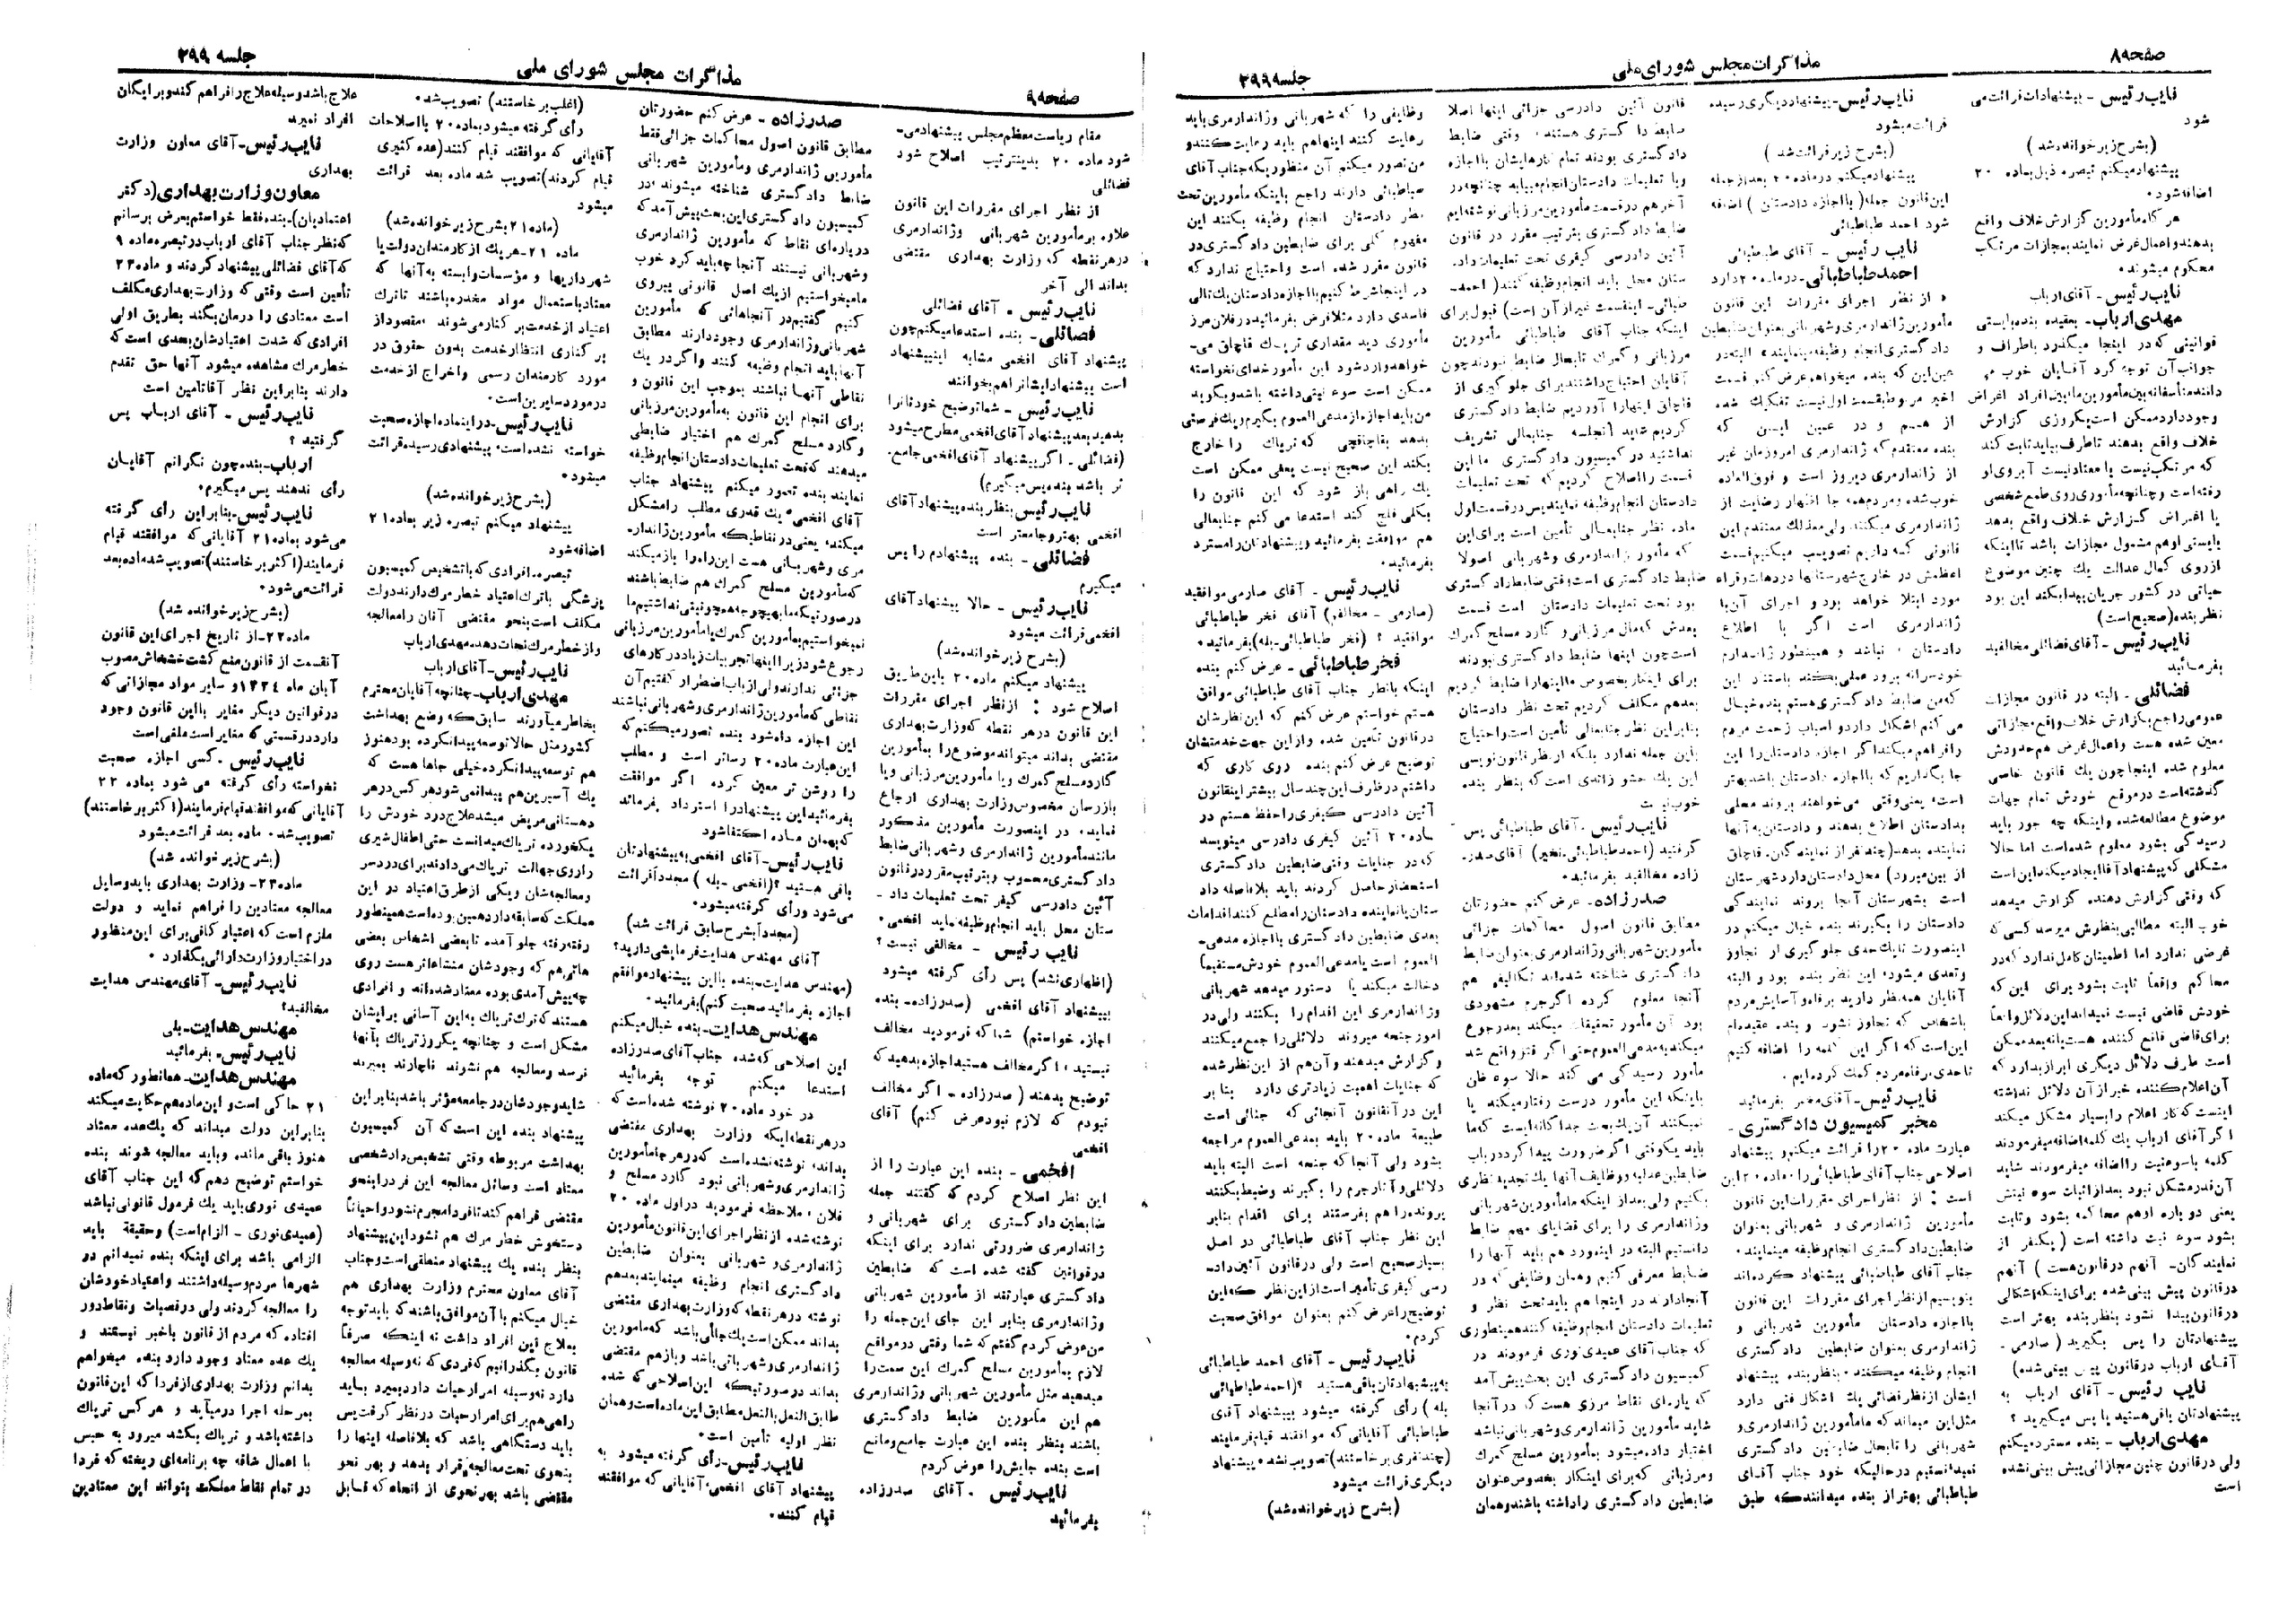 صفحه۸
مذاکرات مجلس شورای ملی
جلسه ۲۹۹
نایب رئیس - پیشنهادات قرائت می
شود
(بشرح زیر خوانده شد)
پیشنهاد میکنم تبصره ذیل بماده ۲۰
اضافه شود.
هر گاه مأمورین گزارش خلاف واقع
بدهند و اعمال غرض نمایند بمجازات مرتکب
محکوم میشوند.
نایب رئیس - آقای ارباب
مهدی ارباب - بعقیده بنده بایستی
قوانینی که در اینجا میگذرد باطراف و
جوانب آن توجه کرد آقایان خوب می
دانند متأسفانه بین مأمورین ما بین افراد اغراض
وجود دارد ممکن است یکروزی گزارش
خلاف واقع بدهند تا طرف بیاید ثابت کند
که مرتکب نیست یا معتاد نیست آبروی او
رفته است و چنانچه مأموری روی طمع شخصی
یا اغراض گزارش خلاف واقع بدهد
بایستی او هم مشمول مجازات باشد تا اینکه
از روی کمال عدالت یک چنین موضوع
حیاتی در کشور جریان پیدا بکند این بود
نظر بنده (صحیح است)
نایب رئیس - آقای فضائلی مخالفید
بفرمائید
فضائلی - البته در قانون مجازات
عمومی راجع بگزارش خلاف واقع مجازاتی
معین شده هست و اعمال غرض هم حدودش
معلوم شده اینجا چون یک قانون خاصی
گذشته است در موقع خودش تمام جهات
موضوع مطالعه شده و اینکه چه جور باید
رسیدگی بشود معلوم شده است اما حالا
مشکلی که پیشنهاد آقا ایجاد میکند این است
که وقتی گزارش دهنده گزارش میدهد
خوب البته مطالبی بنظرش میرسد کسی که
غرضی ندارد اما اطمینان کامل ندارد که در
محاکم واقعاً ثابت بشود برای این که
خودش قاضی نیست نمیداند این دلائل واقعاً
برای قاضی قانع کننده هست یا نه بعد ممکن
است طرف دلائل دیگری ابراز بدارد که
آن اعلام کننده خبر از آن دلائل نداشته
اینست که کار اعلام را بسیار مشکل میکند
اگر آقای ارباب یک کلمه اضافه میفرمودند
کلمه با سوء نیت را اضافه میفرمودند شاید
آن قدر مشکل نبود بعد از اثبات سوء نیتش
یعنی دوباره او هم محاکمه بشود و ثابت
بشود سوء نیت داشته است (یکنفر از
نمایندگان - آنهم در قانون هست) آنهم
در قانون پیش بینی شده برای اینکه اشکالی
در قانون پیدا نشود بنظر بنده بهتر است
پیشنهادتان را پس بگیرید (صارمی -
آقای ارباب در قانون پیش بینی شده)
نایب رئیس - آقای ارباب به
پیشنهادتان باقی هستید یا پس میگیرید ؟
مهدی ارباب - بنده مسترد میکنم
ولی در قانون چنین مجازاتی پیش بینی نشده
است
نایب رئیس - پیشنهاد دیگری رسیده
قرائت میشود
(بشرح زیر قرائت شد)
پیشنهاد میکنم در ماده ۲۰ بعد از جمله
این قانون جمله (با اجازه دادستان) اضافه
شود احمد طباطبائی
نایب رئیس - آقای طباطبائی
احمد طباطبائی - در ماده ۲۰ دارد
« از نظر اجرای مقررات این قانون
مأمورین ژاندارمری و شهربانی بعنوان ضابطین
دادگستری انجام وظیفه مینمایند» البته در
عین این که بنده میخواهم عرض کنم قسمت
اخیر مربوط بقسمت اول نیست تفکیک شده
از هم و در عین این که
بنده معتقدم که ژاندارمری امروزمان غیر
از ژاندارمری دیروز است و فوق العاده
خوب شده و مردم همه جا اظهار رضایت از
ژاندارمری میکنند ولی معذلک معتقدم این
قانونی که داریم تصویب میکنیم قسمت
اعظمش در خارج شهرستانها در دهات و قراء
مورد ابتلا خواهد بود و اجرای آن با
ژاندارمری است اگر با اطلاع
دادستان نباشد و همینطور ژاندارم
خودسرانه برود عملی بکند باستناد این
که من ضابط دادگستری هستم بنده خیال
می کنم اشکال دارد و اسباب زحمت مردم
را فراهم میکند اگر اجازه دادستان را این
جا بگذاریم که با اجازه دادستان باشد بهتر
است یعنی وقتی می خواهند بروند محلی
بدادستان اطلاع بدهند و دادستان به آنها
نماینده بدهد (چند نفر از نمایندگان - قاچاق
از بین میرود) محل دادستان دارد شهرستان
است بشهرستان آنجا بروند نمایندگی
دادستان را بگیرند بنده خیال میکنم در
اینصورت تا یک حدی جلوگیری از تجاوز
و تعدی میشود این نظر بنده بود و البته
آقایان همه نظر دارید برفاه و آسایش مردم
باشخاص که تجاوز نشود و بنده عقیده ام
این است که اگر این کلمه را اضافه کنیم
تا حدی برفاه مردم کمک کرده ایم.
نایب رئیس - آقای مخبر بفرمائید
مخبر کمیسیون دادگستری -
عبارت ماده ۲۰ را قرائت میکنم و پیشنهاد
اصلاحی جناب آقای طباطبائی را. ماده ۲۰ این
است : از نظر اجرای مقررات این قانون
مأمورین ژاندارمری و شهربانی بعنوان
ضابطین دادگستری انجام وظیفه مینمایند.
جناب آقای طباطبائی پیشنهاد کرده اند
بنویسیم از نظر اجرای مقررات این قانون
با اجازه دادستان مأمورین شهربانی و
ژاندارمری بعنوان ضابطین دادگستری
انجام وظیفه میکنند. بنظر بنده پیشنهاد
ایشان از نظر قضائی یک اشکال فنی دارد
مثل این میماند که ما مأمورین ژاندارمری و
شهربانی را تا بحال ضابطین دادگستری
نمیدانستیم در حالیکه خود جناب آقای
طباطبائی بهتر از بنده میدانند که طبق
قانون آئین دادرسی جزائی اینها اصلا
ضابط دادگستری هستند. وقتی ضابط
دادگستری بودند تمام کارهایشان با اجازه
و با تعلیمات دادستان انجام میابد چنانچه در
آخر هم در قسمت مأمورین مرزبانی نوشته ایم
ضابط دادگستری بترتیب مقرر در قانون
آئین دادرسی کیفری تحت تعلیمات داد.
ستان محل باید انجام وظیفه کنند (احمد -
طبائی - اینقسمت غیر از آن است) قبول برای
اینکه جناب آقای طباطبائی مأمورین
مرزبانی و گمرک تا بحال ضابط نبودند چون
آقایان احتیاج داشتند برای جلوگیری از
قاچاق اینها را آوردیم ضابط دادگستری
کردیم شاید آنجلسه جنابعالی تشریف
نداشتید در کمیسیون دادگستری ما این
قسمت را اصلاح کردیم که تحت تعلیمات
دادستان انجام وظیفه نمایند پس در قسمت اول
ماده نظر جنابعالی تأمین است برای این
که مأمور ژاندارمری و شهربانی اصولا
ضابط دادگستری است وقتی ضابط دادگستری
بود تحت تعلیمات دادستان است قسمت
بعدش که مال مرزبانی و گارد مسلح گمرک
است چون اینها ضابط دادگستری نبودند
برای اینکار بخصوص ما اینها را ضابط کردیم
بعد هم مکلف کردیم تحت نظر دادستان
بنابراین نظر جنابعالی تأمین است و احتیاج
باین جمله ندارد بلکه از نظر قانون نویسی
این یک حشو زائدی است که بنظر بنده
خوب نیست
نایب رئیس - آقای طباطبائی پس
گرفتید (احمد طباطبائی - نخیر) آقای صدر.
زاده مخالفید بفرمائید.
صدرزاده - عرض کنم حضورتان
مطابق قانون اصول محاکمات جزائی
مأمورین شهربانی و ژاندارمری بعنوان ضابط
دادگستری شناخته شده اند تکالیف هم
آنجا معلوم کرده اگر جرم مشهودی
بود آن مأمور تحقیقات میکند بعد رجوع
میکند به مدعی العموم حتی اگر قتل واقع شد
مأمور رسیدگی می کند حالا سوء ظن
باینکه این مأمور درست رفتار میکند یا
نمیکنند آن یک بحث جداگانه ایست که ما
باید یکوقتی اگر ضرورت پیدا کرد در باب
ضابطین عدلیه و وظایف آنها یک تجدید نظری
بکنیم ولی بعد از اینکه ما مأمورین شهربانی
و ژاندارمری را برای قضایای مهم ضابط
دانستیم البته در اینمورد هم باید آنها را
ضابط معرفی کنیم و همان وظایفی که در
آنجا دارند در اینجا هم باید تحت نظر و
تعلیمات دادستان انجام وظیفه کنند همینطوری
که جناب آقای عمیدی نوری فرمودند در
کمیسیون دادگستری این بحث پیش آمد
که پاره ای نقاط مرزی هست که در آنجا
شاید مأمورین ژاندارمری و شهربانی نباشد
اختیار داده میشود بمأمورین مسلح گمرک
و مرزبانی که برای اینکار بخصوص عنوان
ضابطین دادگستری را داشته باشند و همان
وظایفی را که شهربانی و ژاندارمری باید
رعایت کنند اینها هم باید رعایت کنند و
من تصور میکنم آن منظوریکه جناب آقای
طباطبائی دارند راجع باینکه مأمورین تحت
نظر دادستان انجام وظیفه بکنند این
مفهوم کلی برای ضابطین دادگستری در
قانون مقرر شده است و احتیاج ندارد که
در اینجا شرط کنیم با اجازه دادستان یک تالی
فاسدی دارد مثلا فرض بفرمائید در فلان مرز
مأموری دید مقداری تریاک قاچاق می-
خواهد وارد شود این مأمور خدای نخواسته
ممکن است سوء نیتی داشته باشد و بگوید
من باید اجازه از مدعی العموم بگیرم و یک فرصتی
بدهد بقاچاقچی که تریاک را خارج
بکند این صحیح نیست یعنی ممکن است
یک راهی باز شود که این قانون را
بکلی فلج کند استدعا می کنم جنابعالی
هم موافقت بفرمائید و پیشنهادتان را مسترد
بفرمائید.
نایب رئیس - آقای صارمی موافقید
(صارمی - مخالفم) آقای فخر طباطبائی
موافقید ؟ (فخر طباطبائی - بله) بفرمائید.
فخر طباطبائی - عرض کنم بنده
اینکه بانظر جناب آقای طباطبائی موافق
هستم خواستم عرض کنم که این نظرشان
در قانون تأمین شده و از این جهت خدمتشان
توضیح عرض کنم بنده روی کاری که
داشتم در ظرف این چند سال بیشتر اینقانون
آئین دادرسی کیفری را حفظ هستم در
ماده ۲۰ آئین کیفری دادرسی مینویسد
که در جنایات وقتی ضابطین دادگستری
استحضار حاصل کردند باید بلافاصله داد
ستان یا نماینده دادستان را مطلع کنند اقدامات
بعدی ضابطین دادگستری با اجازه مدعی-
العموم است یا مدعی العموم خودش مستقیماً
دخالت میکند یا دستور میدهد شهربانی
و ژاندارمری این اقدام را بکنند ولی در
امور جنحه میروند دلائلی را جمع میکنند
و گزارش میدهند و آن هم از این نظر شده
که جنایات اهمیت زیادتری دارد بنا بر
این در آنقانون آنجائی که جنائی است
طبیعة ماده ۲۰ باید بمدعی العموم مراجعه
بشود ولی آنجا که جنحه است البته باید
دلائلی و آثار جرم را بگیرند و ضبط بکنند
پرونده را هم بفرستند برای اقدام بنابر
این نظر جناب آقای طباطبائی در اصل
بسیار صحیح است ولی در قانون آئین داد-
رسی کیفری تأمین است از این نظر که این
توضیح را عرض کنم بعنوان موافق صحبت
کردم.
نایب رئیس - آقای احمد طباطبائی
به پیشنهادتان باقی هستید ؟ (احمد طباطبائی
بله) رأی گرفته میشود به پیشنهاد آقای
طباطبائی آقایانی که موافقند قیام فرمایند
(چند نفری برخاستند) تصویب نشد. پیشنهاد
دیگری قرائت میشود
(بشرح زیر خوانده شد)
صفحه ۹
مذاکرات مجلس شورای ملی
جلسه ۲۹۹
مقام ریاست معظم مجلس پیشنهاد می-
شود ماده ۲۰ بدینترتیب اصلاح شود
فضائلی
از نظر اجرای مقررات این قانون
علاوه بر مأمورین شهربانی و ژاندارمری
در هر نقطه که وزارت بهداری مقتضی
بداند الی آخر
نایب رئیس - آقای فضائلی
فضائلی - بنده استدعا میکنم چون
پیشنهاد آقای افخمی مشابه این پیشنهاد
است پیشنهاد ایشانرا هم بخوانند
نایب رئیس - شما توضیح خودتانرا
بدهید بعد پیشنهاد آقای افخمی مطرح میشود
(فضائلی - اگر پیشنهاد آقای افخمی جامع.
تر باشد بنده پس میگیرم)
نایب رئیس بنظر بنده پیشنهاد آقای
افخمی بهتر و جامعتر است
فضائلی - بنده پیشنهادم را پس
میگیرم
نایب رئیس - حالا پیشنهاد آقای
افخمی قرائت میشود
(بشرح زیر خوانده شد)
پیشنهاد میکنم ماده ۲۰ باین طریق
اصلاح شود : از نظر اجرای مقررات
این قانون در هر نقطه که وزارت بهداری
مقتضی بداند میتواند موضوع را بمأمورین
گارد مسلح گمرک و یا مأمورین مرزبانی و یا
بازرسان مخصوص وزارت بهداری ارجاع
نماید. در اینصورت مأمورین مذکور
مانند مأمورین ژاندارمری و شهربانی ضابط
دادگستری محسوب و بترتیب مقرر در قانون
آئین دادرسی کیفر تحت تعلیمات داد -
ستان محل باید انجام وظیفه نماید افخمی.
نایب رئیس - مخالفی نیست ؟
(اظهاری نشد) پس رأی گرفته میشود
بپیشنهاد آقای افخمی (صدرزاده - بنده
اجازه خواستم) شما که فرمودید مخالف
نیستید. اگر مخالف هستید اجازه بدهید که
توضیح بدهند (صدرزاده - اگر مخالف
نبودم که لازم نبود عرض کنم) آقای
افخمی
افخمی - بنده این عبارت را از
این نظر اصلاح کردم که گفتند جمله
ضابطین دادگستری برای شهربانی و
ژاندارمری ضرورتی ندارد برای اینکه
در قوانین گفته شده است که ضابطین
دادگستری عبارتند از مأمورین شهربانی
و ژاندارمری بنابر این جای این جمله را
من عرض کردم گفتم که شما وقتی در مواقع
لازم بمأمورین مسلح گمرک این سمت را
میدهید مثل مأمورین شهربانی و ژاندارمری
هم این مأمورین ضابط دادگستری
باشند بنظر بنده این عبارت جامع و مانع
است بنده جایش را عوض کردم
نایب رئیس - آقای صدرزاده
بفرمائید
صدرزاده - عرض کنم حضورتان
مطابق قانون اصول محاکمات جزائی فقط
مأمورین ژاندارمری و مأمورین شهربانی
ضابط دادگستری شناخته میشوند. در
کمیسیون دادگستری این بحث پیش آمد که
در پاره ای نقاط که مأمورین ژاندارمری
و شهربانی نیستند آنجا چه باید کرد خوب
ما میخواستیم از یک اصل قانونی پیروی
کنیم گفتیم در آنجاهائی که مأمورین
شهربانی و ژاندارمری وجود دارند مطابق
آنها باید انجام وظیفه کنند و اگر در یک
نقاطی آنها نباشند بموجب این قانون و
برای انجام این قانون به مأمورین مرزبانی
و گارد مسلح گمرک هم اختیار ضابطی
میدهند که تحت تعلیمات دادستان انجام وظیفه
نمایند بنده تصور میکنم پیشنهاد جناب
آقای افخمی یک قدری مطلب را مشکل
میکند. یعنی در نقاطیکه مأمورین ژاندار.
مری و شهربانی هست این راه را باز میکند
که مأمورین مسلح گمرک هم ضابط باشند
در صورتیکه ما بهیچوجه همچو نیتی نداشتیم ما
نمیخواستیم بمأمورین گمرک یا مأمورین مرزبانی
رجوع شود زیرا اینها تجربیات زیاد در کارهای
جزائی ندارند ولی از باب اضطرار گفتیم آن
نقاطی که مأمورین ژاندارمری و شهربانی نباشند
این اجازه داده شود بنده تصور میکنم که
این عبارت ماده ۲۰ رساتر است و مطلب
را روشن تر معین کرده اگر موافقت
بفرمائید این پیشنهاد را استرداد بفرمائند
که بهمان ماده اکتفا شود
نایب رئیس - آقای افخمی به پیشنهادتان
باقی هستید ؟ (افخمی - بله) مجدداً قرائت
می شود و رأی گرفته میشود.
(مجدداً بشرح سابق قرائت شد)
آقای مهندس هدایت فرمایشی دارید؟
(مهندس هدایت - بنده با این پیشنهاد موافقم
اجازه بفرمائید صحبت کنم) بفرمائید.
مهندس هدایت - بنده خیال میکنم
این اصلاحی که شده جناب آقای صدرزاده
استدعا میکنم توجه بفرمائید
در خود ماده ۲۰ نوشته شده است که
در هر نقطه ایکه وزارت بهداری مقتضی
بداند. نوشته نشده است که در هر جا مأمورین
ژاندارمری و شهربانی نبود گارد مسلح و
فلان. ملاحظه فرمودید در اول ماده ۲۰
نوشته شده از نظر اجرای این قانون مأمورین
ژاندارمری و شهربانی بعنوان ضابطین
دادگستری انجام وظیفه مینمایند بعد هم
نوشته در هر نقطه که وزارت بهداری مقتضی
بداند ممکن است یک جائی باشد که مأمورین
ژاندارمری و شهربانی باشد و باز هم مقتضی
بداند در صورتیکه این اصلاحی که شده
طابق النعل بالنعل مطابق این ماده است و همان
نظر اولیه تأمین است.
نایب رئیس - رأی گرفته میشود به
پیشنهاد آقای افخمی. آقایانی که موافقند
قیام کنند.
(اغلب برخاستند) تصویب شد.
رأی گرفته میشود بماده ۲۰ با اصلاحات
آقایانی که موافقند قیام کنند (عده کثیری
قیام کردند) تصویب شد ماده بعد قرائت
میشود
(ماده ۲۱ بشرح زیر خوانده شد)
ماده ۲۱ - هر یک از کارمندان دولت یا
شهرداریها و مؤسسات وابسته به آنها که
معتاد باستعمال مواد مخدره باشند تا ترک
اعتیاد از خدمت بر کنار می شوند. مقصود از
بر کناری انتظار خدمت بدون حقوق در
مورد کارمندان رسمی و اخراج از خدمت
در مورد سایرین است.
نایب رئیس - در اینماده اجازه صحبت
خواسته نشده است. پیشنهادی رسیده قرائت
میشود.
(بشرح زیر خوانده شد)
پیشنهاد میکنم تبصره زیر بماده ۲۱
اضافه شود
تبصره - افرادی که با تشخیص کمیسیون
پزشکی با ترک اعتیاد خطر مرگ دارند دولت
مکلف است بنحو مقتضی آنان را معالجه
و از خطر مرگ نجات دهد - مهدی ارباب
نایب رئیس - آقای ارباب
مهدی ارباب - چنانچه آقایان محترم
بخاطر میآورند سابق که وضع بهداشت
کشور مثل حالا توسعه پیدا نکرده بود هنوز
هم توسعه پیدا نکرده خیلی جاها هست که
یک آسپرین هم پیدا نمی شود هر کس در هر
دهستانی مریض میشد علاج درد خودش را
یکخورده تریاک میدانست حتی اطفال شیری
را روی جهالت تریاک می دادند برای دردسر
و معالجه شان و یکی از طرق اعتیاد در این
مملکت که سابقه دارد همین بوده است همینطور
رفته رفته جلو آمده تا بعضی اشخاص بعضی
هائی هم که وجودشان منشاء اثر هست روی
چه پیش آمدی بوده معتاد شده اند و افرادی
هستند که ترک تریاک به این آسانی برایشان
مشکل است و چنانچه یکروز تریاک بآنها
نرسد و معالجه هم نشوند ناچارند بمیرند
شاید وجودشان در جامعه مؤثر باشد بنابر این
پیشنهاد بنده این است که آن کمیسیون
بهداشت مربوطه وقتی تشخیص داد شخصی
معتاد است وسائل معالجه این فرد را بنحو
مقتضی فراهم کند تا فرد امجرم نشود و احیاناً
دستخوش خطر مرگ هم نشود این پیشنهاد
بنظر بنده یک پیشنهاد منطقی است و جناب
آقای معاون محترم وزارت بهداری هم
خیال میکنم با آن موافق باشند که باید توجه
بعلاج این افراد داشت نه اینکه صرفاً
قانون بگذرانیم که فردی که نه وسیله معالجه
دارد نه وسیله امرار حیات دارد بمیرد باید
راهی هم برای امرار حیات در نظر گرفت پس
باید دستگاهی باشد که بلافاصله اینها را
بنحوی تحت معالجه قرار بدهد و بهر نحو
مقتضی باشد بهر نحوی از انحاء که قابل
علاج باشد وسیله علاج را فراهم کند و برایگان
افراد نمیرند
نایب رئیس - آقای معاون وزارت
بهداری
معاون وزارت بهداری (دکتر
اعتمادیان) - بنده فقط خواستم بعرض برسانم
که نظر جناب آقای ارباب در تبصره ماده ۹
که آقای فضائلی پیشنهاد کردند و ماده ۲۳
تأمین است وقتی که وزارت بهداری مکلف
است معتادی را درمان بکند بطریق اولی
افرادی که شدت اعتیادشان بعدی است که
خطر مرگ مشاهده میشود آنها حق تقدم
دارند بنابر این نظر آقا تأمین است
نایب رئیس - آقای ارباب پس
گرفتید ؟
ارباب - بنده چون نگرانم آقایان
رأی ندهند پس میگیرم.
نایب رئیس - بنابر این رأی گرفته
می شود بماده ۲۱ آقایانی که موافقند قیام
فرمایند (اکثر برخاستند) تصویب شد ماده بعد
قرائت می شود.
(بشرح زیر خوانده شد)
ماده ۲۲ - از تاریخ اجرای این قانون
آنقسمت از قانون منع کشت خشخاش مصوب
آبان ماه ۱۳۳۴ و سایر مواد مجازاتی که
در قوانین دیگر مغایر با این قانون وجود
دارد در قسمتی که مغایر است ملغی است
نایب رئیس - کسی اجازه صحبت
نخواسته رأی گرفته می شود بماده ۲۲
آقایانی که موافقند قیام فرمایند (اکثر برخاستند)
تصویب شد. ماده بعد قرائت میشود
(بشرح زیر خوانده شد)
ماده ۲۳ - وزارت بهداری باید وسایل
معالجه معتادین را فراهم نماید و دولت
ملزم است که اعتبار کافی برای این منظور
در اختیار وزارت دارائی بگذارد .
نایب رئیس - آقای مهندس هدایت
مخالفید؟
مهندس هدایت - بلی
نایب رئیس - بفرمائید
مهندس هدایت - همانطور که ماده
۲۱ حاکی است و این ماده هم حکایت میکند
بنابر این دولت میداند که یک عده معتاد
هنوز باقی مانده و باید معالجه شوند بنده
خواستم توضیح دهم که این جناب آقای
عمیدی نوری باید یک فرمول قانونی نباشد
(عمیدی نوری - الزام است) و حقیقة باید
الزامی باشد برای اینکه بنده نمیدانم در
شهرها مردم وسیله داشتند و اعتیاد خودشان
را معالجه کردند ولی در قصبات و نقاط دور
افتاده که مردم از قانون باخبر نیستند و
یک عده معتاد وجود دارد بنده میخواهم
بدانم وزارت بهداری از فردا که این قانون
بمرحله اجرا درمیآید و هر کس تریاک
داشته باشد و تریاک بکشد میرود به حبس
با اعمال شاقه چه برنامه ای ریخته که فردا
در تمام نقاط مملکت بتواند این معتادین